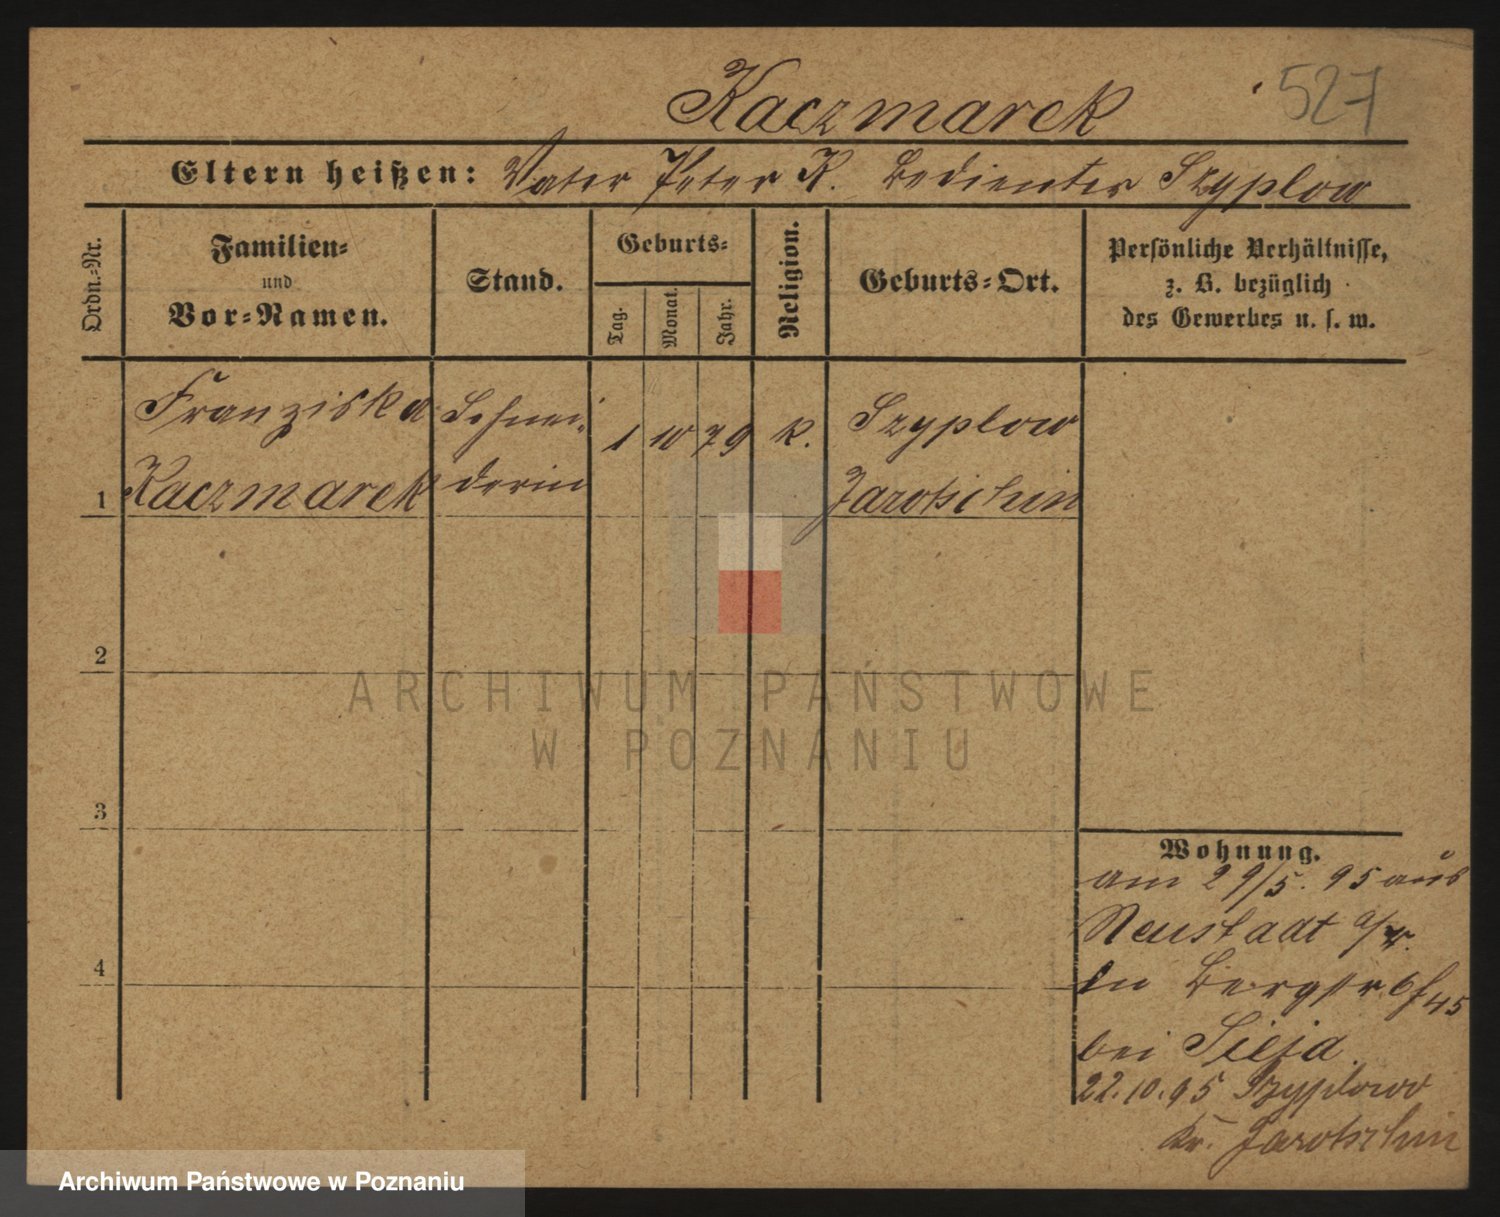 Kaczmarek 527
Eltern heißen: Vater Peter K. Bedienter Szyplow
Ordn.-Nr.
Familien-
und
Vor-Namen.
Stand.
Geburts-
Tag.
Monat.
Jahr.
Religion.
Geburts-Ort.
Persönliche Verhältnisse,
z. B. bezüglich
des Gewerbes u. s. w.
Franziska Schnei- 1 10 79 K. Szyplow
1 Kaczmarek derin Jarotschin
2
3
4
Wohnung.
am 29/5. 95 aus
Neustadt a/W.
in Bergstr
bei
22.10.95 Szyplow
Kr. Jarotschin
ARCHIWUM PAŃSTWOWE
W POZNANIU
Archiwum Państwowe w Poznaniu